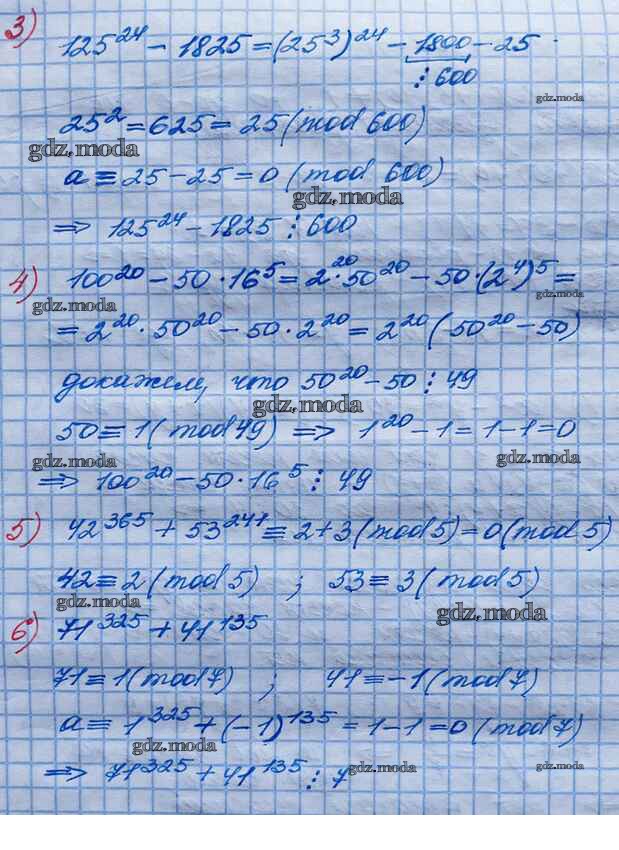 3) 125²⁴ - 1825 = (25³)²⁴ - 1800 - 25
⋮ 600
gdz.moda
25² = 625 = 25 (mod 600)
gdz.moda
a ≡ 25 - 25 = 0 (mod 600)
gdz.moda
⇒ 125²⁴ - 1825 ⋮ 600
4) 100²⁰ - 50 · 16⁵ = 2²⁰ · 50²⁰ - 50 · (2⁴)⁵ =
gdz.moda gdz.moda
= 2²⁰ · 50²⁰ - 50 · 2²⁰ = 2²⁰ (50²⁰ - 50)
докажем, что 50²⁰ - 50 ⋮ 49
gdz.moda
50 ≡ 1 (mod 49) ⇒ 1²⁰ - 1 = 1 - 1 = 0
gdz.moda gdz.moda
⇒ 100²⁰ - 50 · 16⁵ ⋮ 49
5) 42³⁶⁵ + 53²⁴¹ ≡ 2 + 3 (mod 5) = 0 (mod 5)
42 ≡ 2 (mod 5) ; 53 ≡ 3 (mod 5)
gdz.moda gdz.moda
6) 71³²⁵ + 41¹³⁵
71 ≡ 1 (mod 7) ; 41 ≡ -1 (mod 7)
a ≡ 1³²⁵ + (-1)¹³⁵ = 1 - 1 = 0 (mod 7)
gdz.moda
⇒ 71³²⁵ + 41¹³⁵ ⋮ 7
gdz.moda gdz.moda
gdz.moda